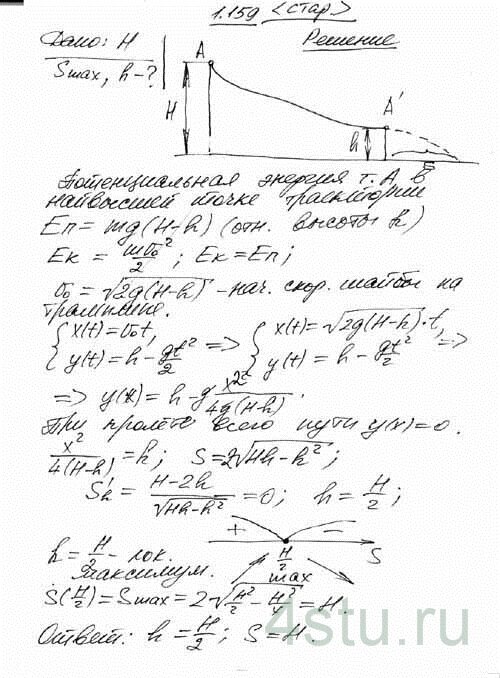 1.159 <стар>
Дано: H
Smax, h-?
Решение
A
H
A'
h
S
Потенциальная энергия т. А в
наивысшей точке траектории
Eп = mg(H-h) (отн. высоты h)
Eк = mv₀²/2; Eк = Eп;
v₀ = √2g(H-h) - нач. скор. шайбы на
трамплине.
{x(t) = v₀t, y(t) = h - gt²/2 => {x(t) = √2g(H-h)·t, y(t) = h - gt²/2 =>
=> y(x) = h - g x²/4g(H-h).
При пролете всего пути y(x) = 0.
x²/4(H-h) = h; S = 2√Hh-h²;
S'h = H-2h/√Hh-h² = 0; h = H/2;
+ -
H/2 S
max
h = H/2 - лок.
максимум.
S(H/2) = Smax = 2√H²/2 - H²/4 = H.
Ответ: h = H/2; S = H.
4stu.ru